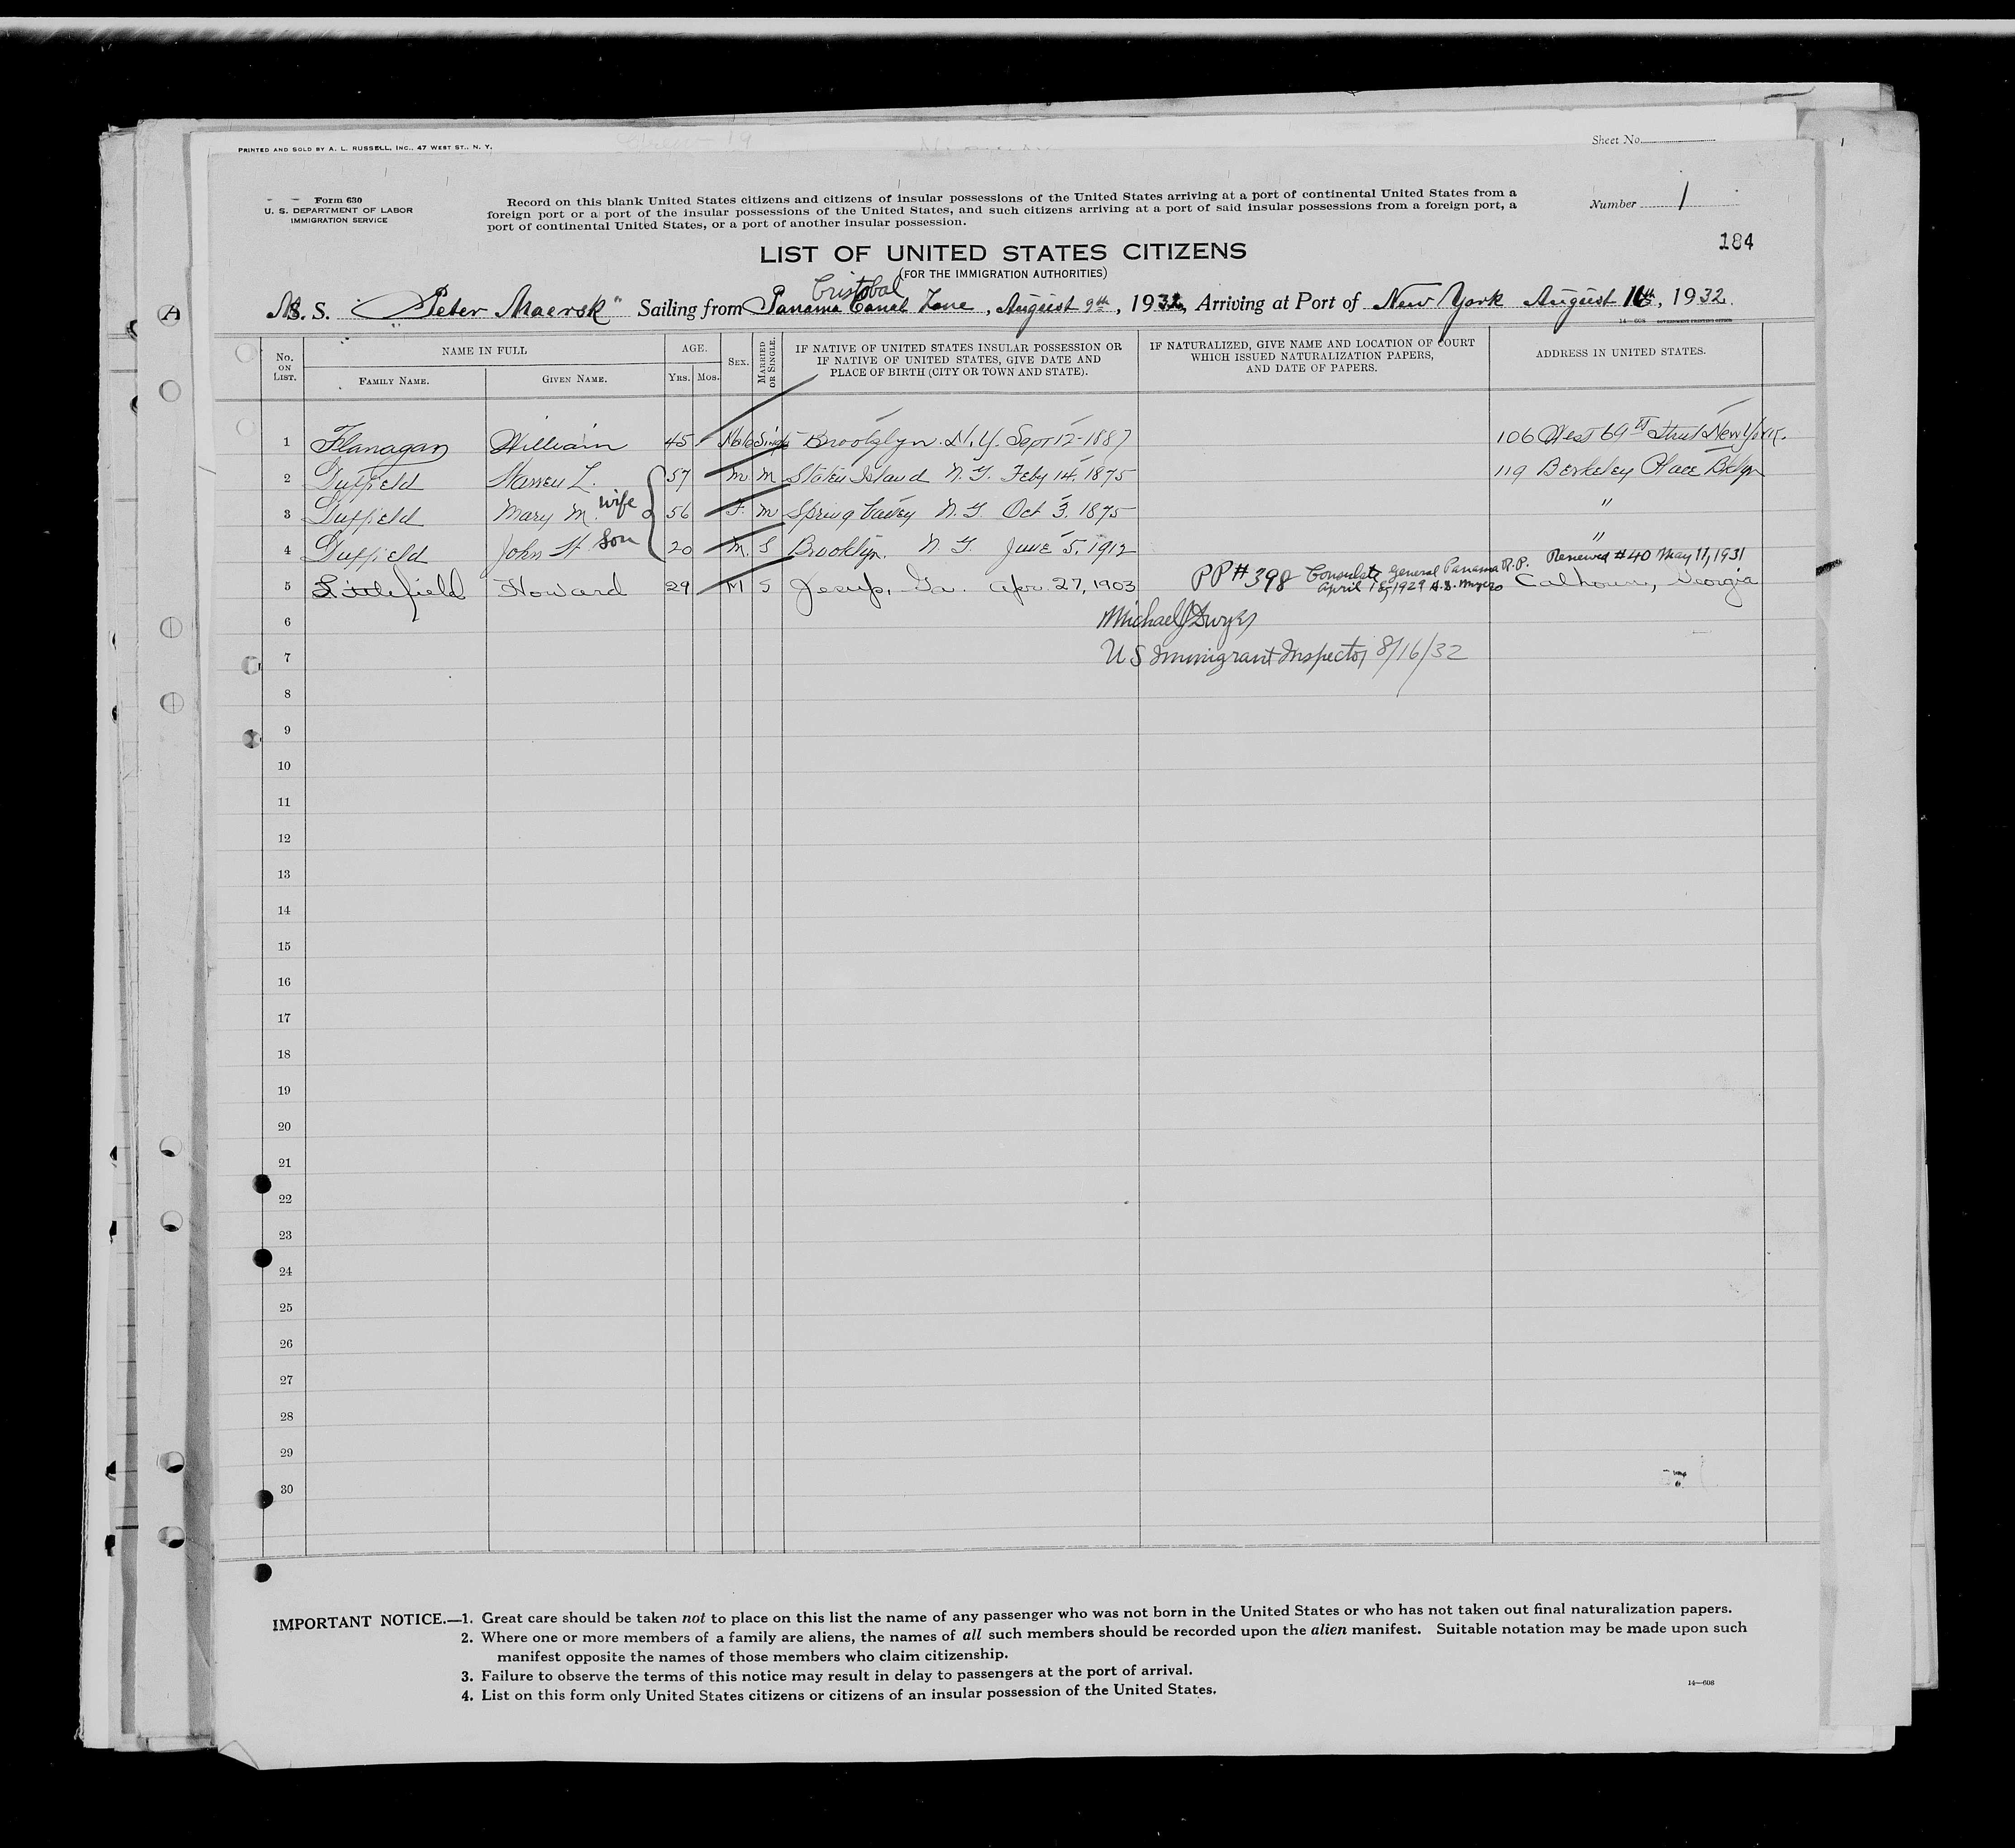 PRINTED AND SOLD BY A. L. RUSSELL, INC., 47 WEST ST., N. Y.
Sheet No.
Form 630
U. S. DEPARTMENT OF LABOR
IMMIGRATION SERVICE
Record on this blank United States citizens and citizens of insular possessions of the United States arriving at a port of continental United States from a
foreign port or a port of the insular possessions of the United States, and such citizens arriving at a port of said insular possessions from a foreign port, a
port of continental United States, or a port of another insular possession.
Number 1
184
LIST OF UNITED STATES CITIZENS
(FOR THE IMMIGRATION AUTHORITIES)
Cristobal
M. S. "Peter Maersk" Sailing from Panama Canal Zone, August 9th, 1932, Arriving at Port of New York August 16th, 1932.
14—608 GOVERNMENT PRINTING OFFICE
No. ON LIST.
NAME IN FULL
FAMILY NAME.
GIVEN NAME.
AGE.
Yrs. Mos.
SEX.
MARRIED OR SINGLE.
IF NATIVE OF UNITED STATES INSULAR POSSESSION OR
IF NATIVE OF UNITED STATES, GIVE DATE AND
PLACE OF BIRTH (CITY OR TOWN AND STATE).
IF NATURALIZED, GIVE NAME AND LOCATION OF COURT
WHICH ISSUED NATURALIZATION PAPERS,
AND DATE OF PAPERS.
ADDRESS IN UNITED STATES.
1 Flanagan William 45 Male Single Brooklyn. N.Y. Sept 12-1887 106 West 69th Street New York.
2 Duffield Warren L. 57 M M Staten Island N.Y. Feby 14, 1875 119 Berkeley Place Bklyn
3 Duffield Mary M. wife 56 F. M Spring Valley N.Y. Oct 3. 1875 "
4 Duffield John H. Son 20 M. S Brooklyn. N.Y. June 5, 1912 "
Renewed #40 May 11, 1931
5 Littlefield Howard 29 M S Jesup, Ga. Apr. 27, 1903 PP #398 Consulate General Panama R.P. April 18, 1929 Calhoun, Georgia
6 Michael J Dwyer
7 US Immigrant Inspector 8/16/32
8
9
10
11
12
13
14
15
16
17
18
19
20
21
22
23
24
25
26
27
28
29
30
IMPORTANT NOTICE.—1. Great care should be taken not to place on this list the name of any passenger who was not born in the United States or who has not taken out final naturalization papers.
2. Where one or more members of a family are aliens, the names of all such members should be recorded upon the alien manifest. Suitable notation may be made upon such
manifest opposite the names of those members who claim citizenship.
3. Failure to observe the terms of this notice may result in delay to passengers at the port of arrival.
4. List on this form only United States citizens or citizens of an insular possession of the United States.
14—608